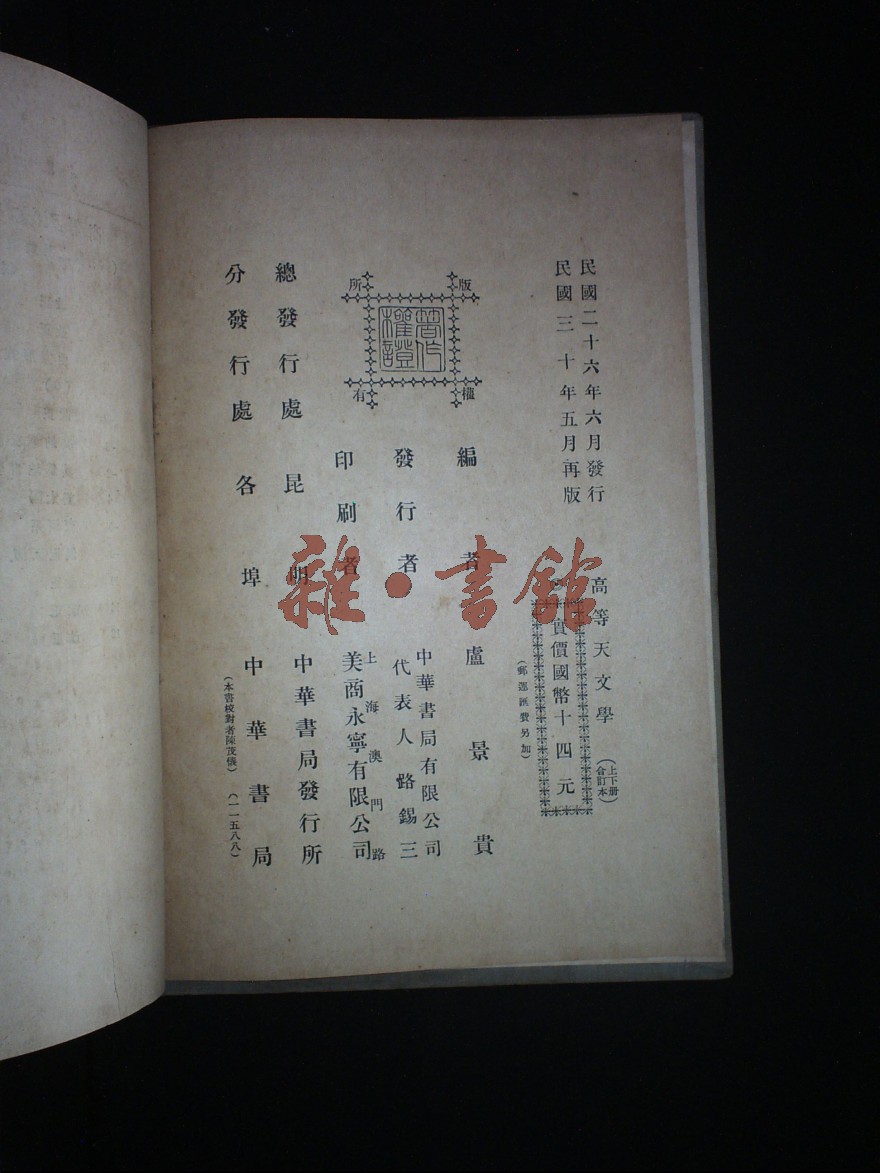 民國二十六年六月發行
民國三十年五月再版
高等天文學(上下册合訂本)
實價國幣十四元
(郵運匯費另加)
版權所有
著作權證
編者 盧景貴
發行者 中華書局有限公司
代表人 路錫三
印刷者 上海澳門路
美商永寧有限公司
總發行處 昆明 中華書局發行所
分發行處 各埠 中華書局
(本書校對者陳茂儀)
(一一五八八)
雜·書館